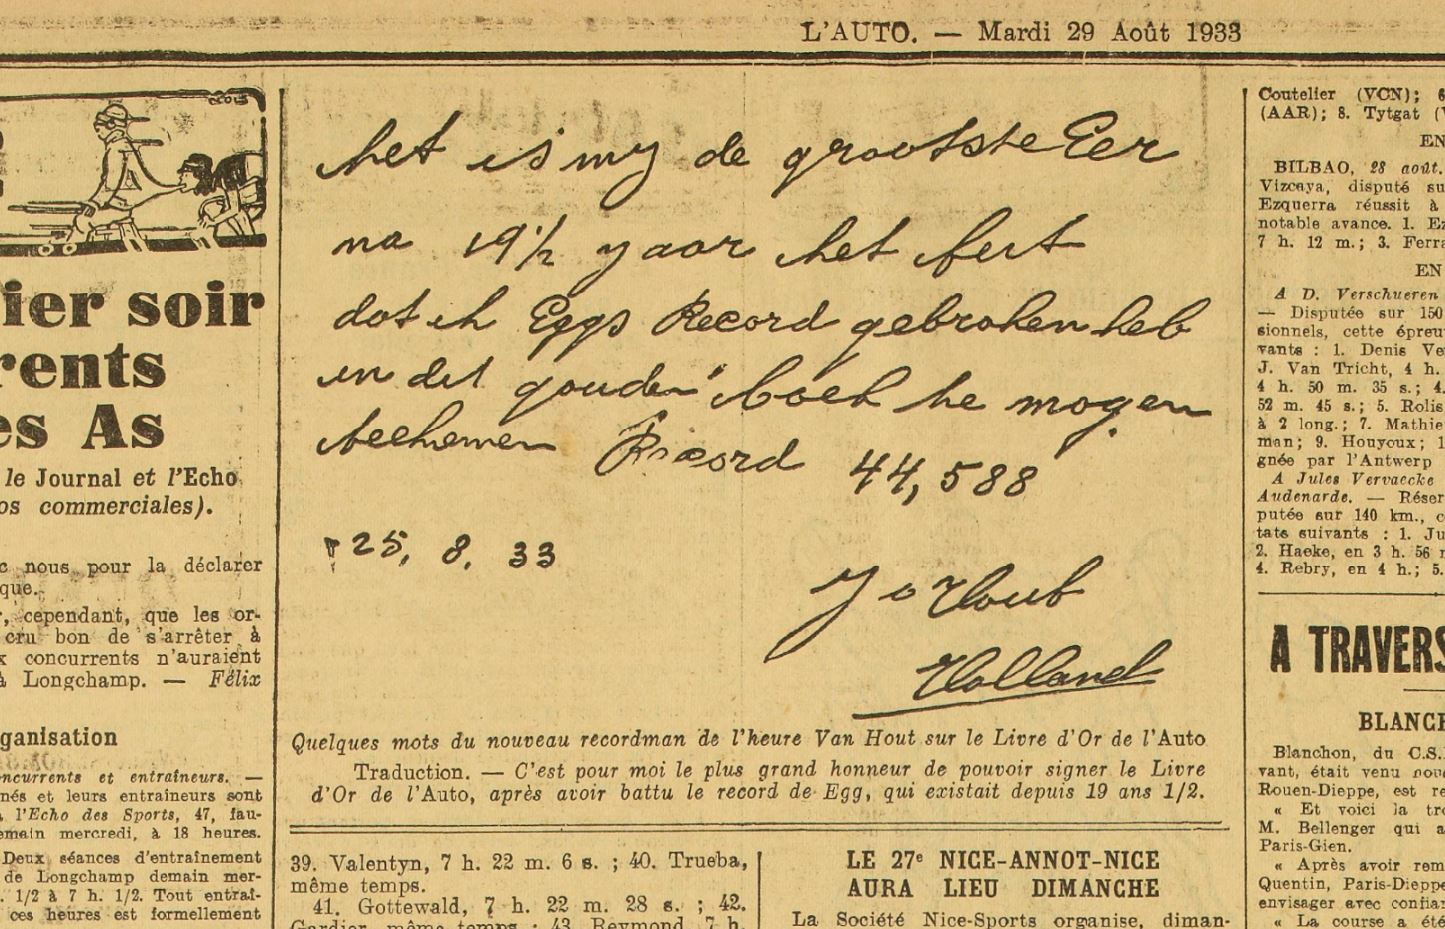 L'AUTO. — Mardi 29 Août 1933
ier soir
rents
es As
le Journal et l'Echo
os commerciales).
c nous pour la déclarer
que.
r, cependant, que les or-
cru bon de s'arrêter à
x concurrents n'auraient
à Longchamp. — Félix
ganisation
oncurrents et entraîneurs. —
nés et leurs entraîneurs sont
l'Echo des Sports, 47, fau-
emain mercredi, à 18 heures.
Deux séances d'entraînement
de Longchamp demain mer-
. 1/2 à 7 h. 1/2. Tout entraî-
ces heures est formellement
het is my de grootste Eer
na 19 1/2 yaar het feit
dat ik Eggs Record gebroken heb
in dit gouden boek te mogen
teekenen Record 44,588
25, 8. 33
J v Hout
Holland
Quelques mots du nouveau recordman de l'heure Van Hout sur le Livre d'Or de l'Auto
Traduction. — C'est pour moi le plus grand honneur de pouvoir signer le Livre
d'Or de l'Auto, après avoir battu le record de Egg, qui existait depuis 19 ans 1/2.
39. Valentyn, 7 h. 22 m. 6 s. ; 40. Trueba,
même temps.
41. Gottewald, 7 h. 22 m. 28 s. ; 42.
Gardier, même temps ; 43. Reymond, 7 h.
LE 27e NICE-ANNOT-NICE
AURA LIEU DIMANCHE
La Société Nice-Sports organise, diman-
Coutelier (VCN); 6
(AAR); 8. Tytgat (V
EN
BILBAO, 28 août.
Vizcaya, disputé su
Ezquerra réussit à
notable avance. 1. Ez
7 h. 12 m.; 3. Ferra
EN
A D. Verschueren
— Disputée sur 150
sionnels, cette épreu
vants : 1. Denis Ve
J. Van Tricht, 4 h.
4 h. 50 m. 35 s.; 4.
52 m. 45 s.; 5. Rolis
à 2 long.; 7. Mathie
man; 9. Houyoux; 1
gnée par l'Antwerp
A Jules Vervaecke
Audenarde. — Réser
putée sur 140 km., c
tats suivants : 1. Ju
2. Haeke, en 3 h. 56 m
4. Rebry, en 4 h.; 5.
A TRAVERS
BLANCH
Blanchon, du C.S.
vant, était venu nou
Rouen-Dieppe, est re
« Et voici la tr
M. Bellenger qui a
Paris-Gien.
« Après avoir rem
Quentin, Paris-Dieppe
envisager avec confia
« La course a été